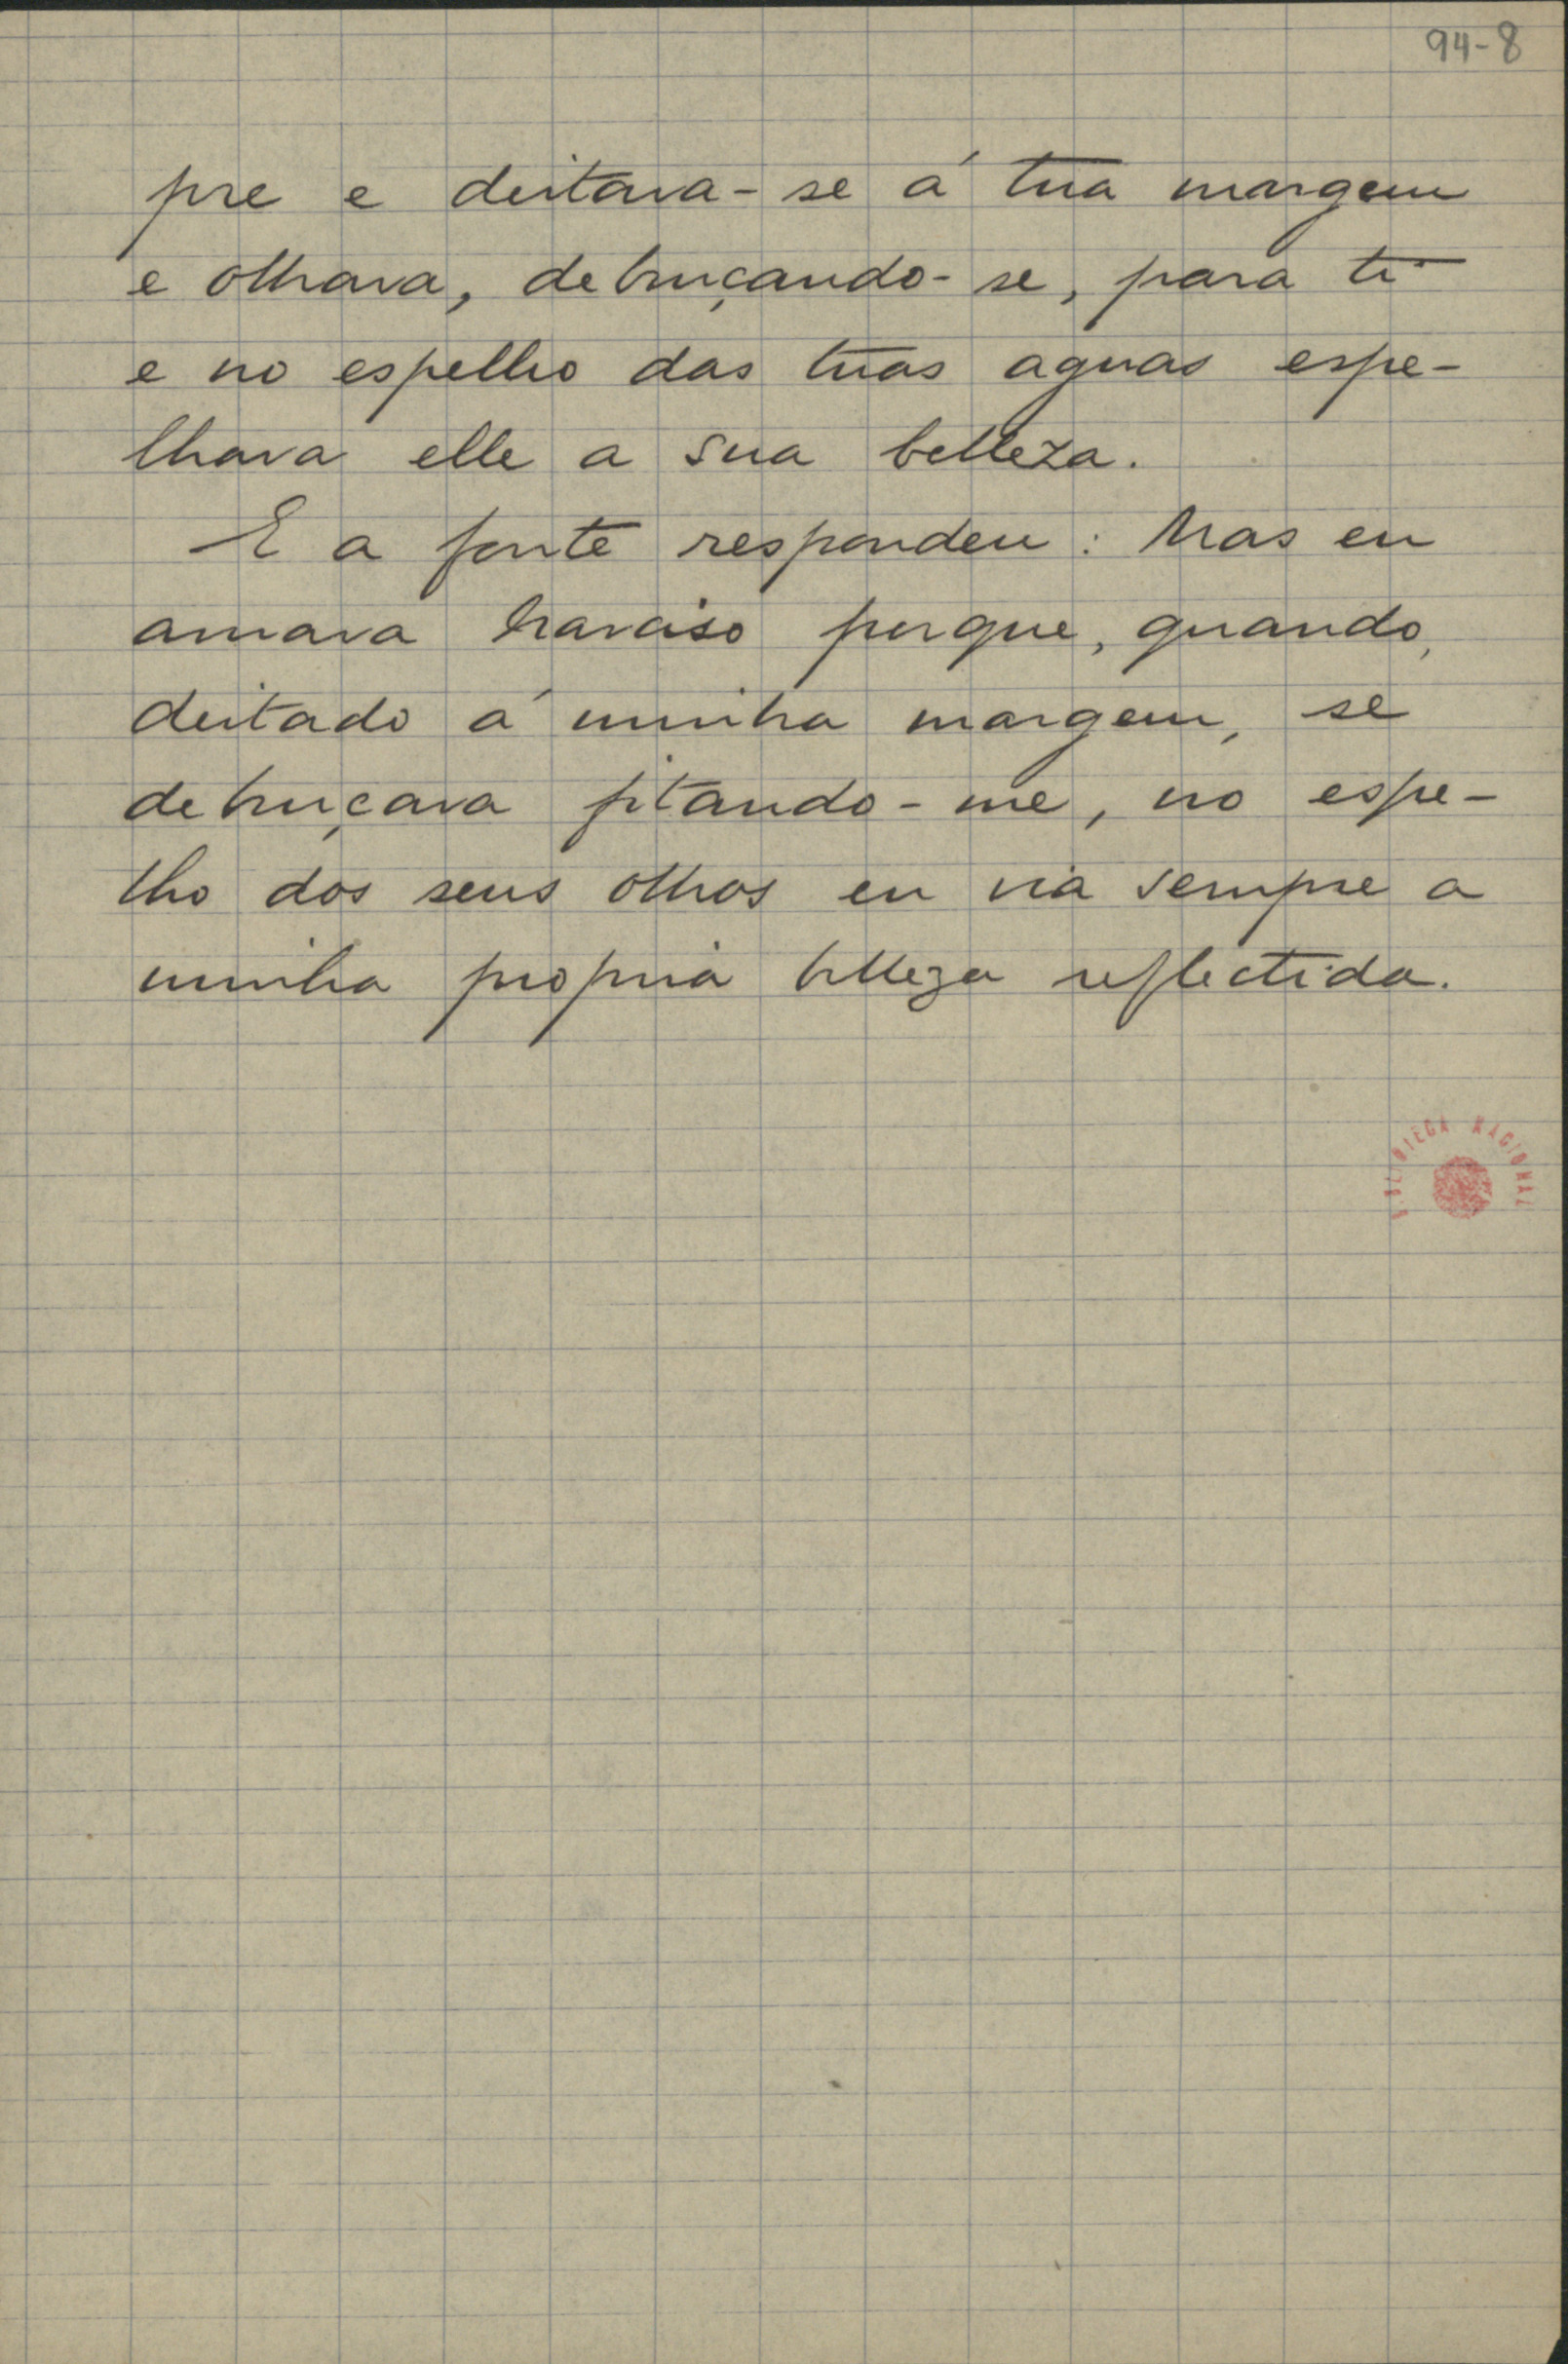 94-8
pre e deitava-se á tua margem
e olhava, debruçando-se, para ti
e no espelho das tuas aguas espe-
lhava elle a sua belleza.
E a fonte respondeu: Mas eu
amava Narciso porque, quando,
deitado á minha margem, se
debruçava fitando-me, no espe-
lho dos seus olhos eu via sempre a
minha propria belleza reflectida.
BIBLIOTECA NACIONAL